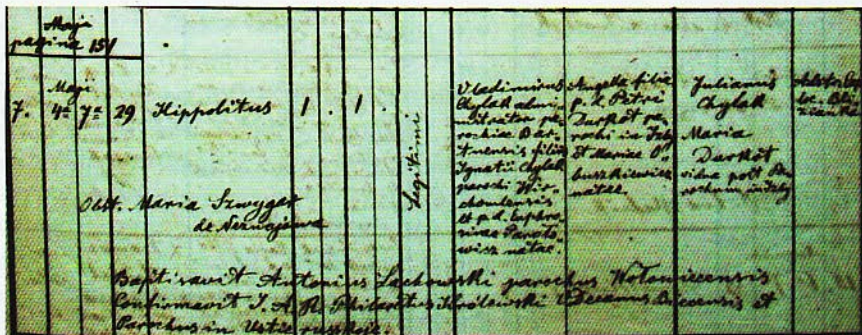 Maja
pagina 151
Maji
7. 4ª 7ª 29 Hippolitus 1 . 1 .
Legitimi
Vladimirus
Chylak admi-
nistrator pa-
rochiae Bar-
tnensis filius
Ignatii Chylak
parochi Wir-
choulensis
et p. d. Euphro-
sinae Paroto-
wicz natae.
Angella filia
p. d. Petri
Durkot pa-
rochi in
et Mariae O-
buszkiewicz
natae.
Julianus
Chylak
Maria
Durkot
vidua post Pa-
rochum in
Obst. Maria Szwygar
de Nieznajowa
Baptisavit Antonius Lackowski parochus Wołowiecensis
Confirmavit J. A. R. Philaretus Królewski Decanus Biecensis et
Parochus in Uście russkie.